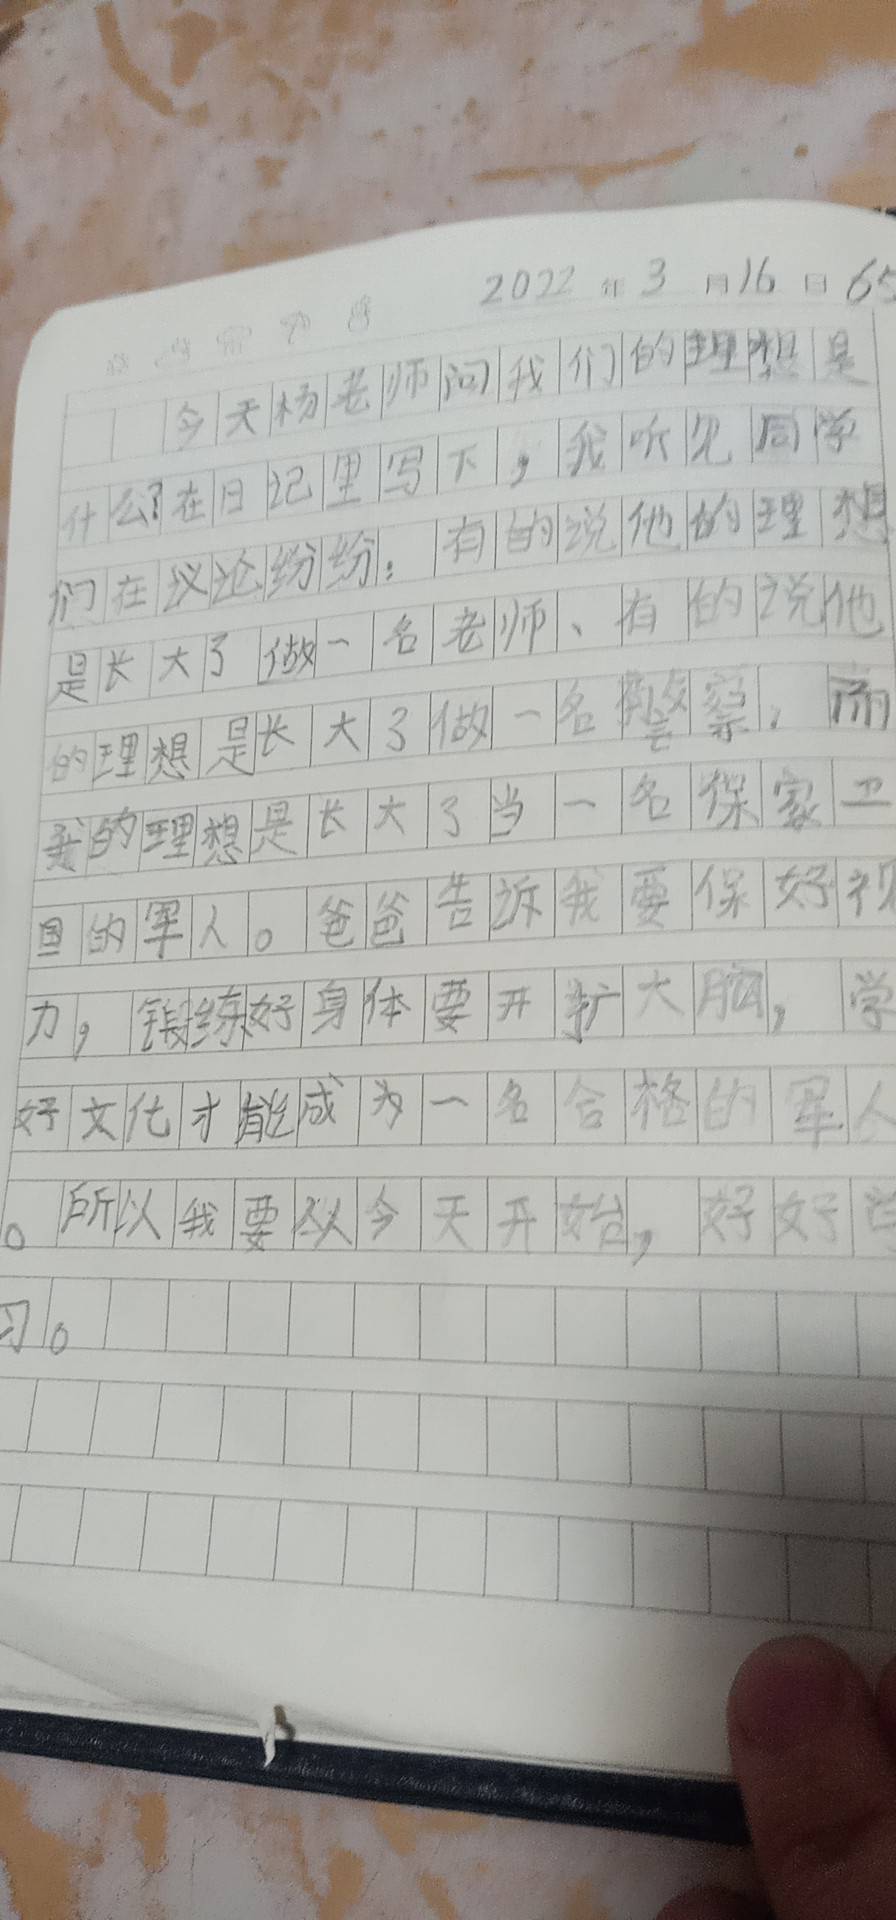 2022年3月16日 65
今天杨老师问我们的理想是
什么?在日记里写下,我听见同学
们在议论纷纷:有的说他的理想
是长大了做一名老师、有的说他
的理想是长大了做一名警察,而
我的理想是长大了当一名保家卫
国的军人。爸爸告诉我要保好视
力,锻练好身体要开扩大脑,学
好文化才能成为一名合格的军人
。所以我要从今天开始,好好学
习。